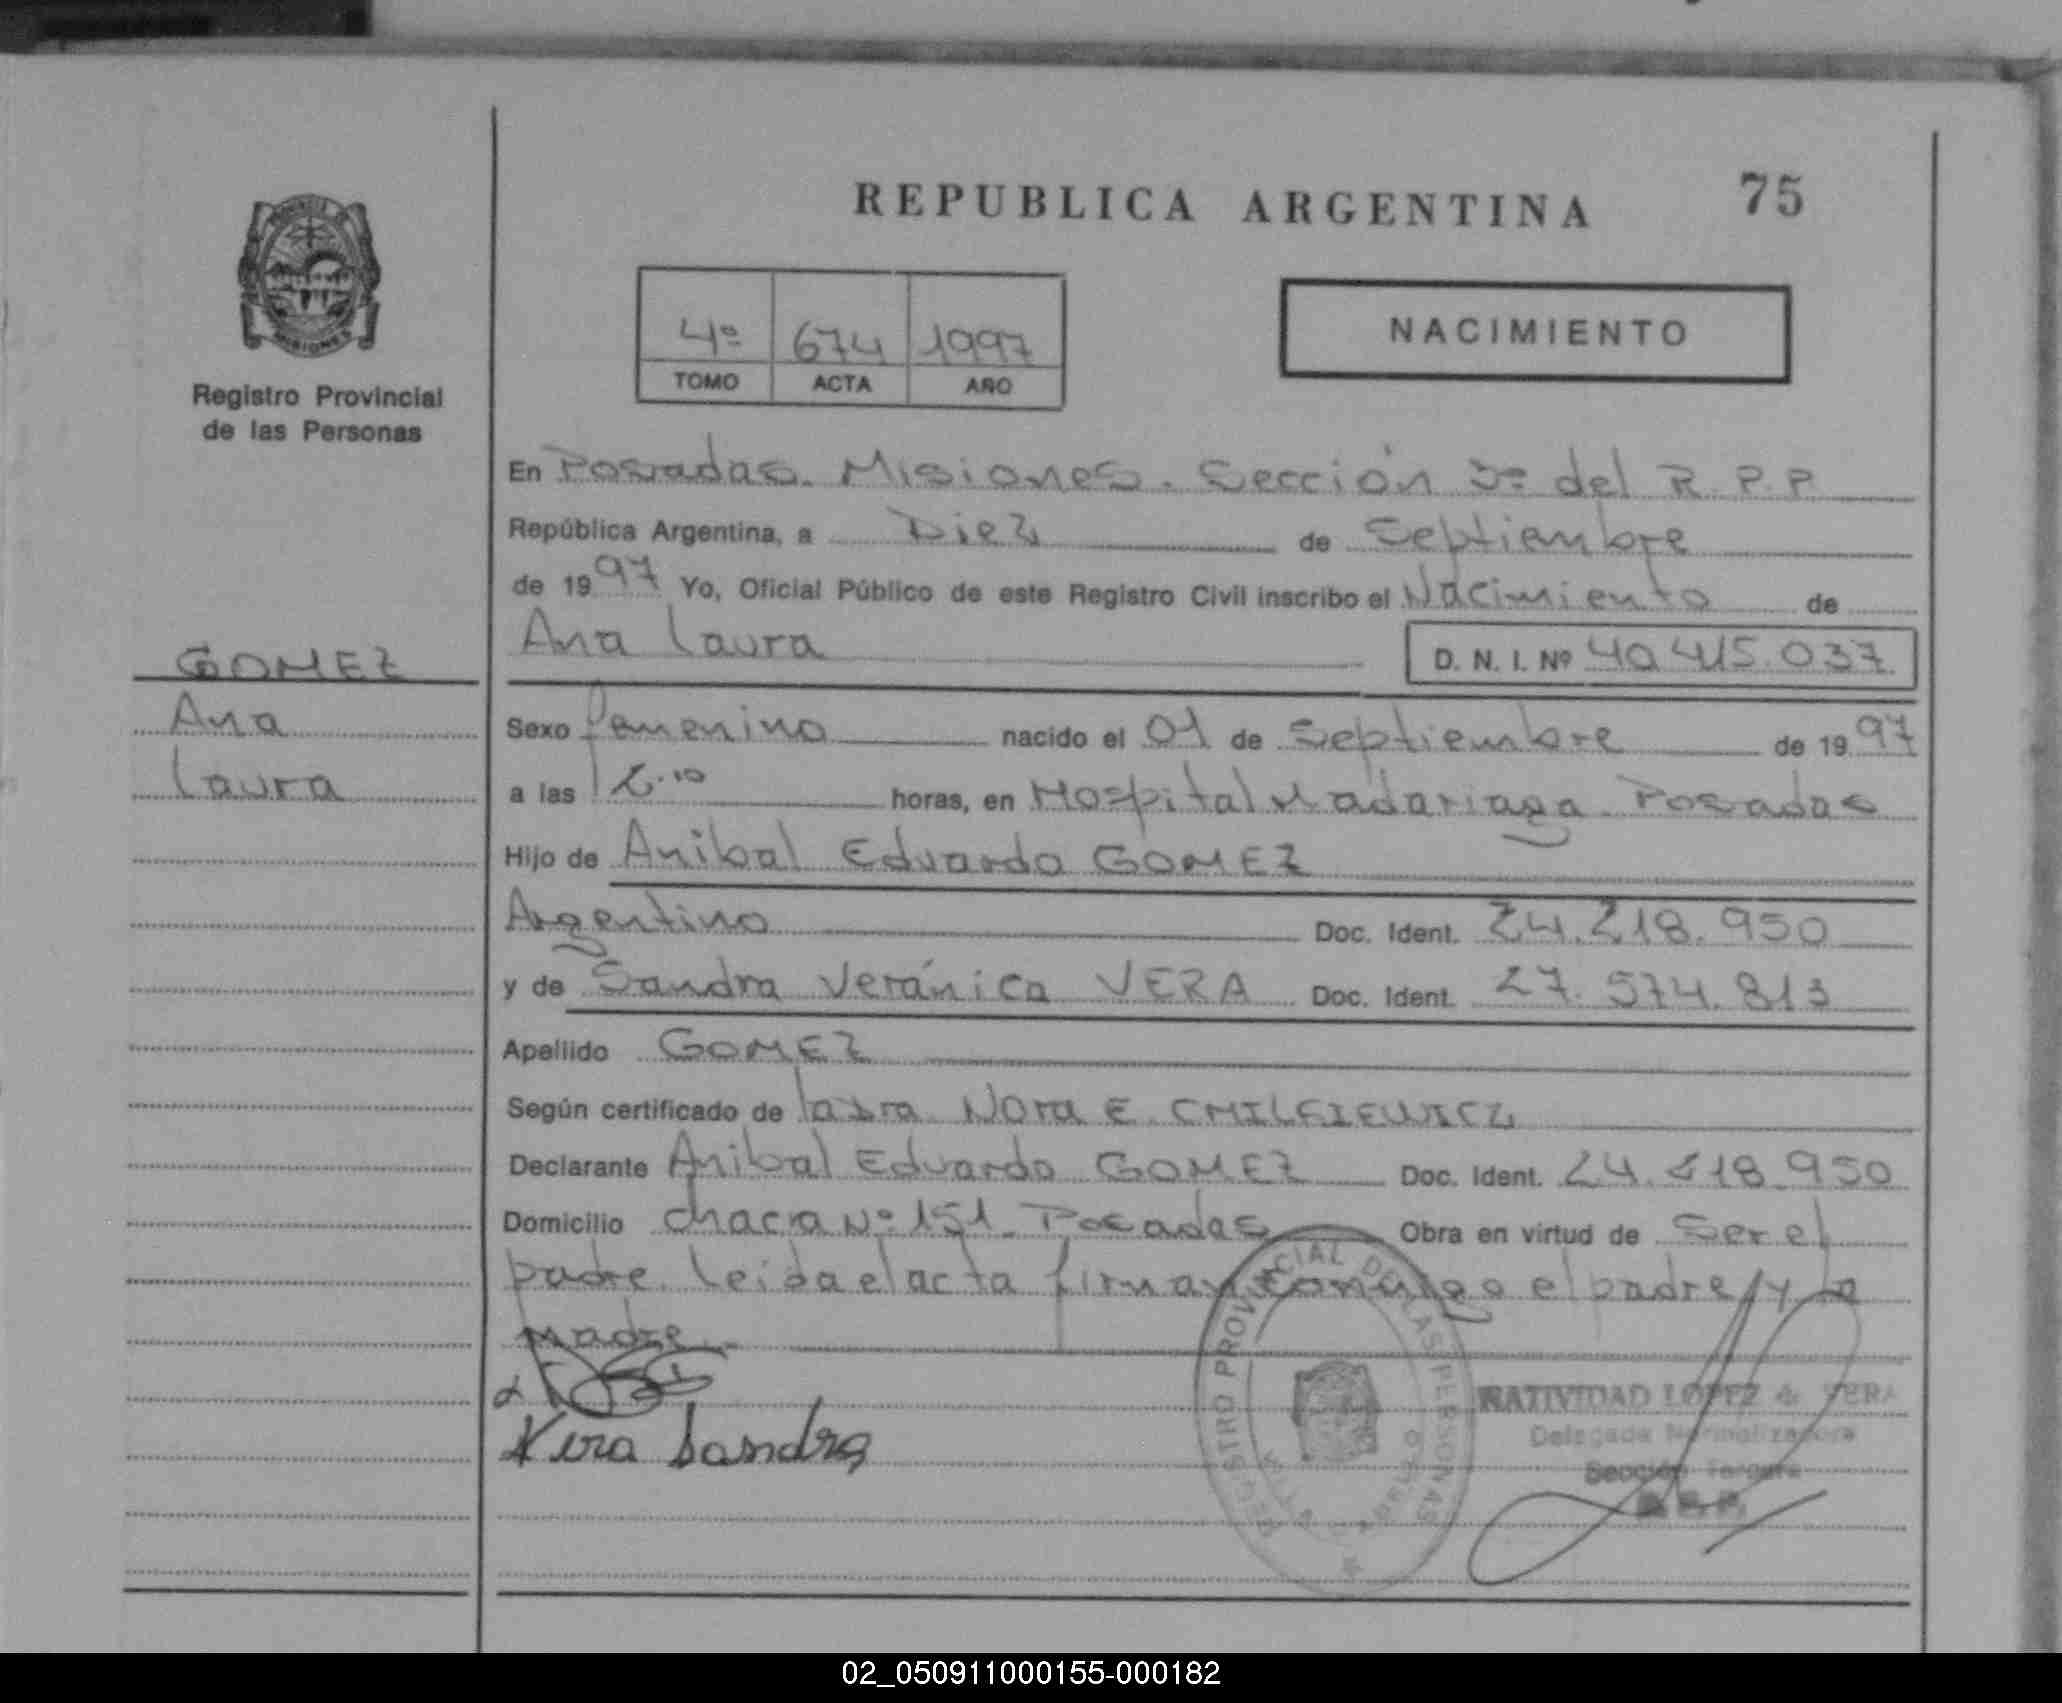 REPUBLICA ARGENTINA
75
PROVINCIA DE
MISIONES
Registro Provincial
de las Personas
4º 674 1997
TOMO ACTA AÑO
NACIMIENTO
En Posadas. Misiones. Sección 3º del R.P.P.
República Argentina, a Diez de Septiembre
de 1997 Yo, Oficial Público de este Registro Civil inscribo el Nacimiento de
Ana Laura D. N. I. Nº 40.415.037
GOMEZ
Ana
Laura
Sexo femenino nacido el 01 de Septiembre de 1997
a las 12.10 horas, en Hospital Madariaga. Posadas
Hijo de Anibal Eduardo GOMEZ
Argentino Doc. Ident. 24.218.950
y de Sandra Verónica VERA Doc. Ident. 27.574.813
Apellido GOMEZ
Según certificado de la Dra Nora E.
Declarante Anibal Eduardo GOMEZ Doc. Ident. 24.218.950
Domicilio chacra Nº 151 Posadas Obra en virtud de Ser el
padre. Leida el acta firman conmigo el padre y la
madre.
Vera Sandra
REGISTRO PROVINCIAL DE LAS PERSONAS
NATIVIDAD LOPEZ de VERA
Delegada Normalizadora
Sección Tercera
R.P.P.
02_050911000155-000182